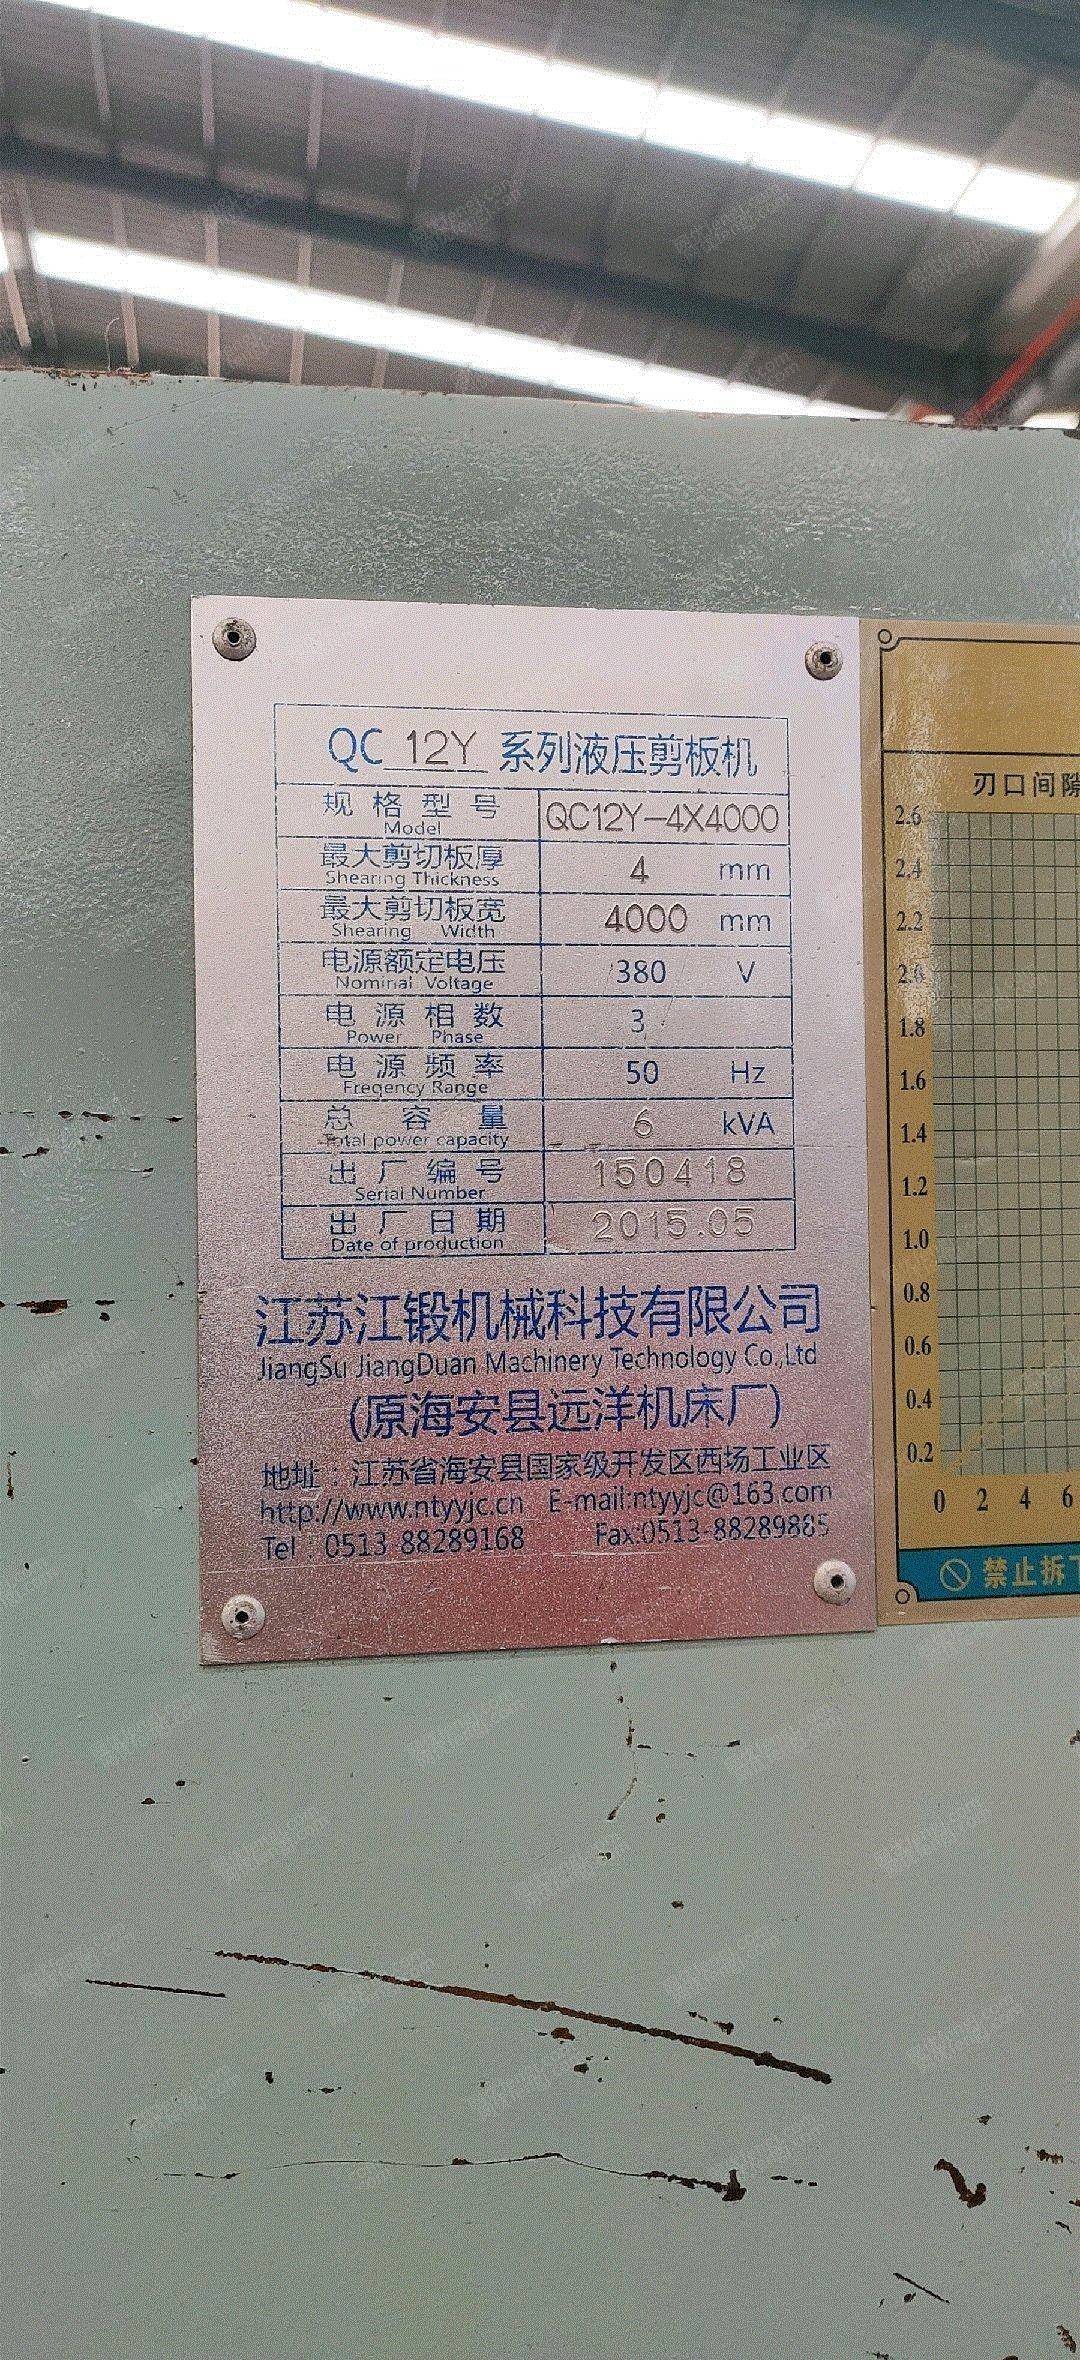 QC 12Y 系列液压剪板机
规格型号 QC12Y-4X4000
Model
最大剪切板厚 4 mm
Shearing Thickness
最大剪切板宽 4000 mm
Shearing Width
电源额定电压 380 V
Nominal Voltage
电源相数 3
Power Phase
电源频率 50 Hz
Freqency Range
总容量 6 kVA
Total power capacity
出厂编号 150418
Serial Number
出厂日期 2015.05
Date of production
江苏江锻机械科技有限公司
JiangSu JiangDuan Machinery Technology Co.,Ltd
(原海安县远洋机床厂)
地址：江苏省海安县国家级开发区西场工业区
http://www.ntyyjc.cn E-mail:ntyyjc@163.com
Tel：0513-88289168 Fax:0513-88289885
刃口间隙
2.6
2.4
2.2
2.0
1.8
1.6
1.4
1.2
1.0
0.8
0.6
0.4
0.2
0 2 4 6
禁止拆